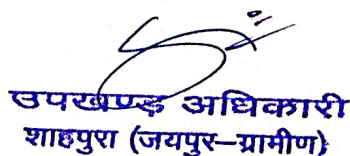 उपखण्ड अधिकारी
शाहपुरा (जयपुर–ग्रामीण)